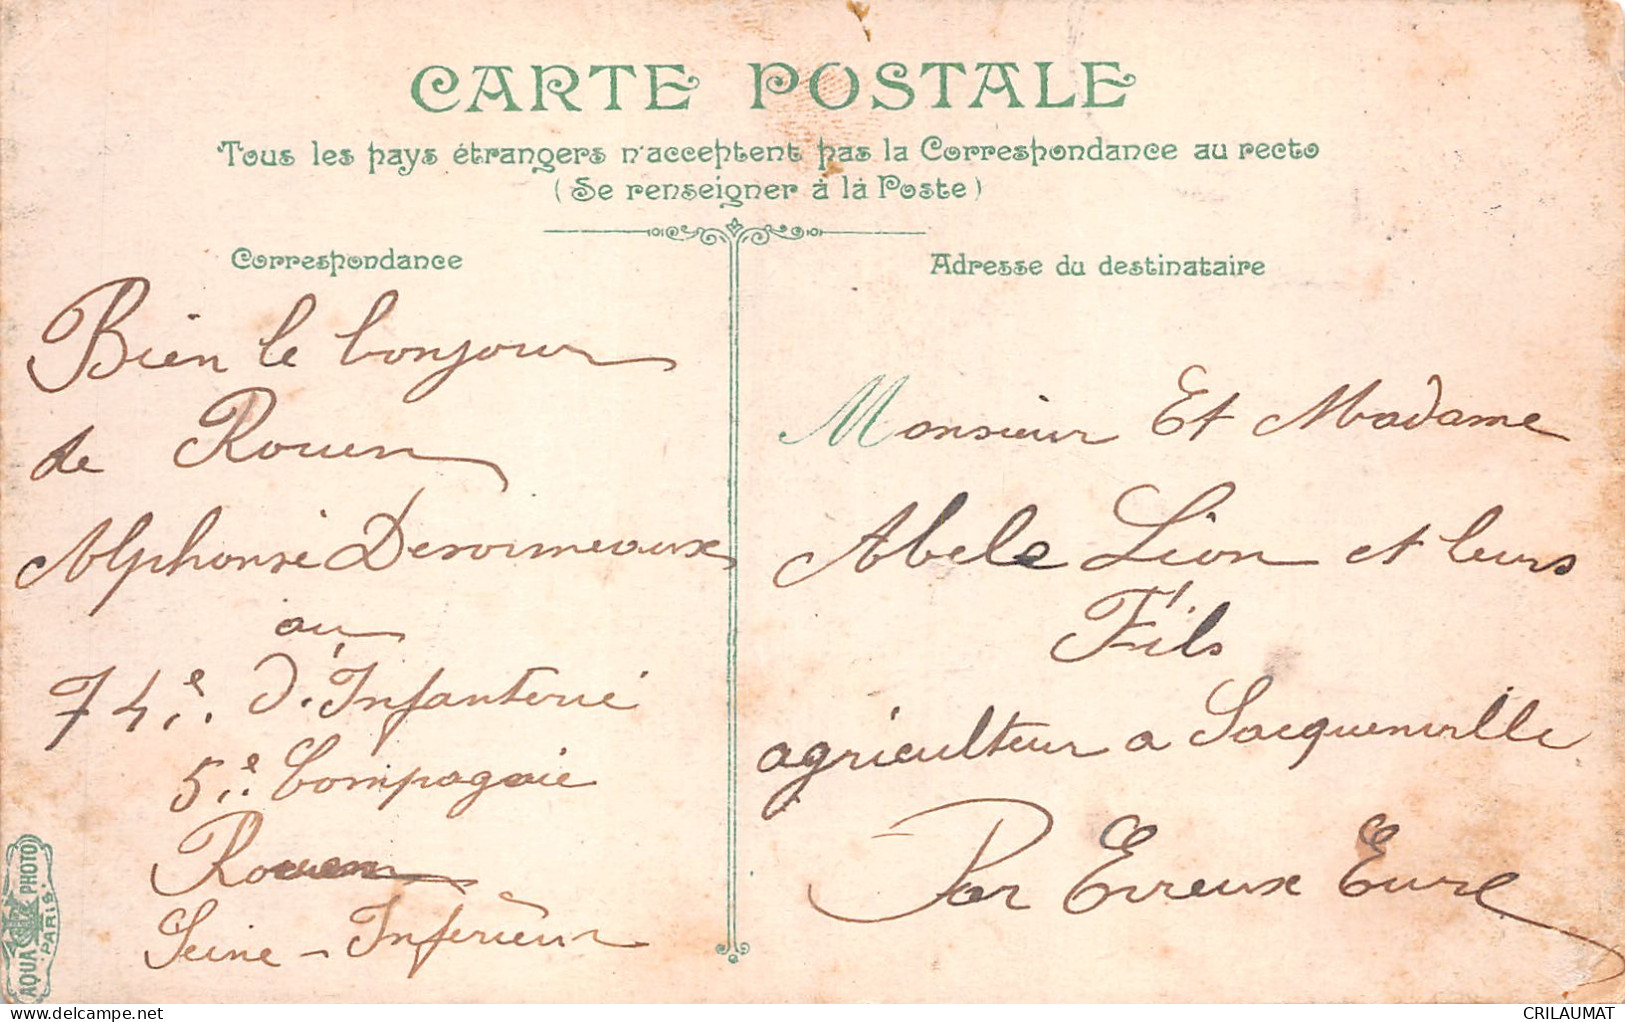 CARTE POSTALE
Tous les pays étrangers n'acceptent pas la Correspondance au recto
(Se renseigner à la Poste)
Correspondance
Bien le bonjour
de Rouen
Alphonse Desormeaux
au
74e. d'Infanterie
5e Compagnie
Rouen
Seine-Inférieur
Adresse du destinataire
Monsieur Et Madame
Abele Lion et leurs
Fils
agriculteur a Sacquenville
Par Evreux Eure
AQUA PHOTO
PARIS
delcampe.net
CRILAUMAT